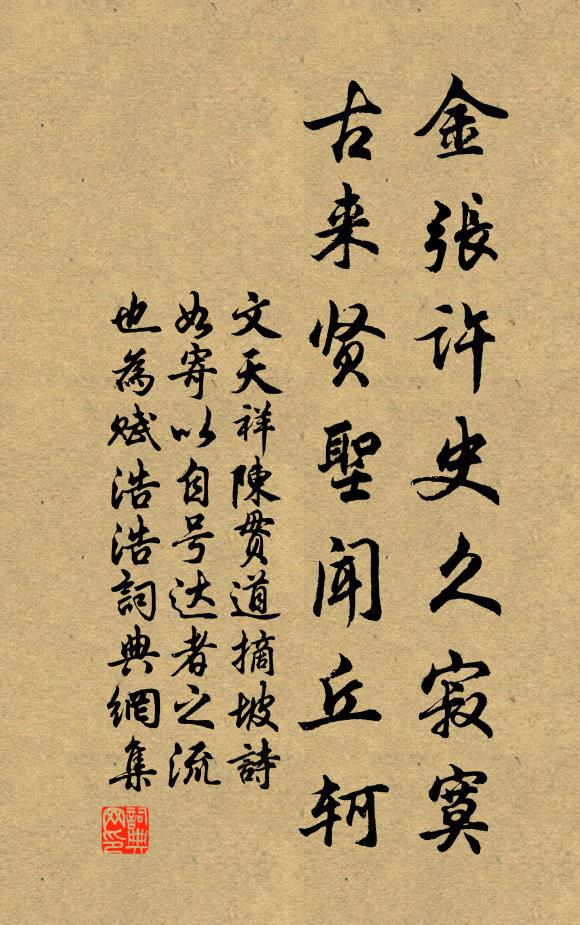 金張許史久寂寞
古来贤聖闻丘轲
文天祥陳貫道摘坡詩
如寄以自号达者之流
也為赋浩浩詞典網集
詞典网印